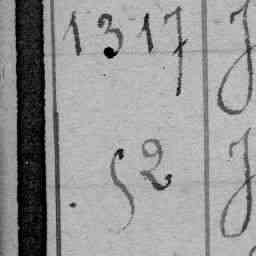 1317 J
. 52 J